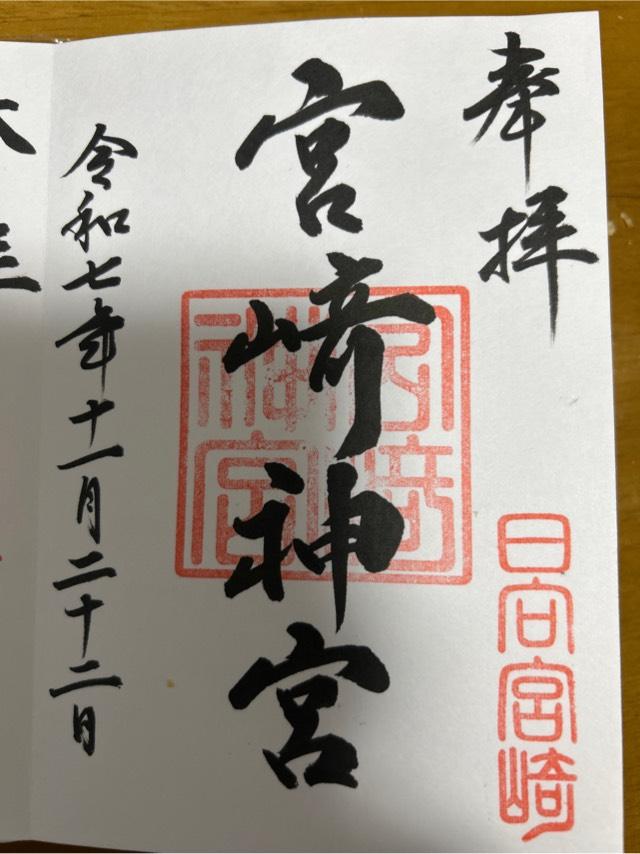 奉拝
日向宮崎
宮﨑神宮
宮﨑神宮
令和七年十一月二十二日